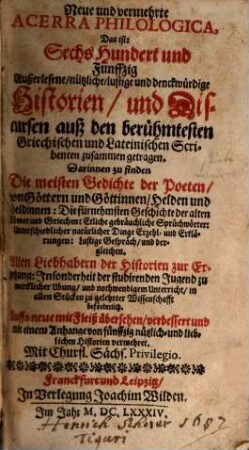 Neue und vermehrte
ACERRA PHILOLOGICA,
Das ist:
Sechs Hundert und
Funfftzig
Außerlesene/nützliche/lustige und denckwürdige
Historien/und Dis-
cursen auß den berühmtesten
Griechischen und Lateinischen Scri-
benten zusammen getragen.
Darinnen zu finden
Die meisten Gedichte der Poeten/
von Göttern und Göttinnen/Helden und
Heldinnen: Die fürnehmsten Geschichte der alten
Römer und Griechen: Etliche gebräuchliche Sprüchwörter:
Unterschiedlicher natürlicher Dinge Erzehl- und Erklä-
rungen: Lustige Gespräch/und der-
gleichen.
Allen Liebhabern der Historien zur Er-
getzung: Insonderheit der studirenden Jugend zu
mercklicher Übung/und nothwendigem Unterricht/in
allen Stücken zu gelehrter Wissenschafft
beförderlich.
Auffs neue mit Fleiß übersehen/verbessert und
mit einem Anhange von funfftzig nützlich- und lieb-
lichen Historien vermehret.
Mit Churfl. Sächs. Privilegio.
Franckfurt und Leipzig/
In Verlegung Joachim Wilden.
Im Jahr M, DC, LXXXIV.
1687
Tiguri